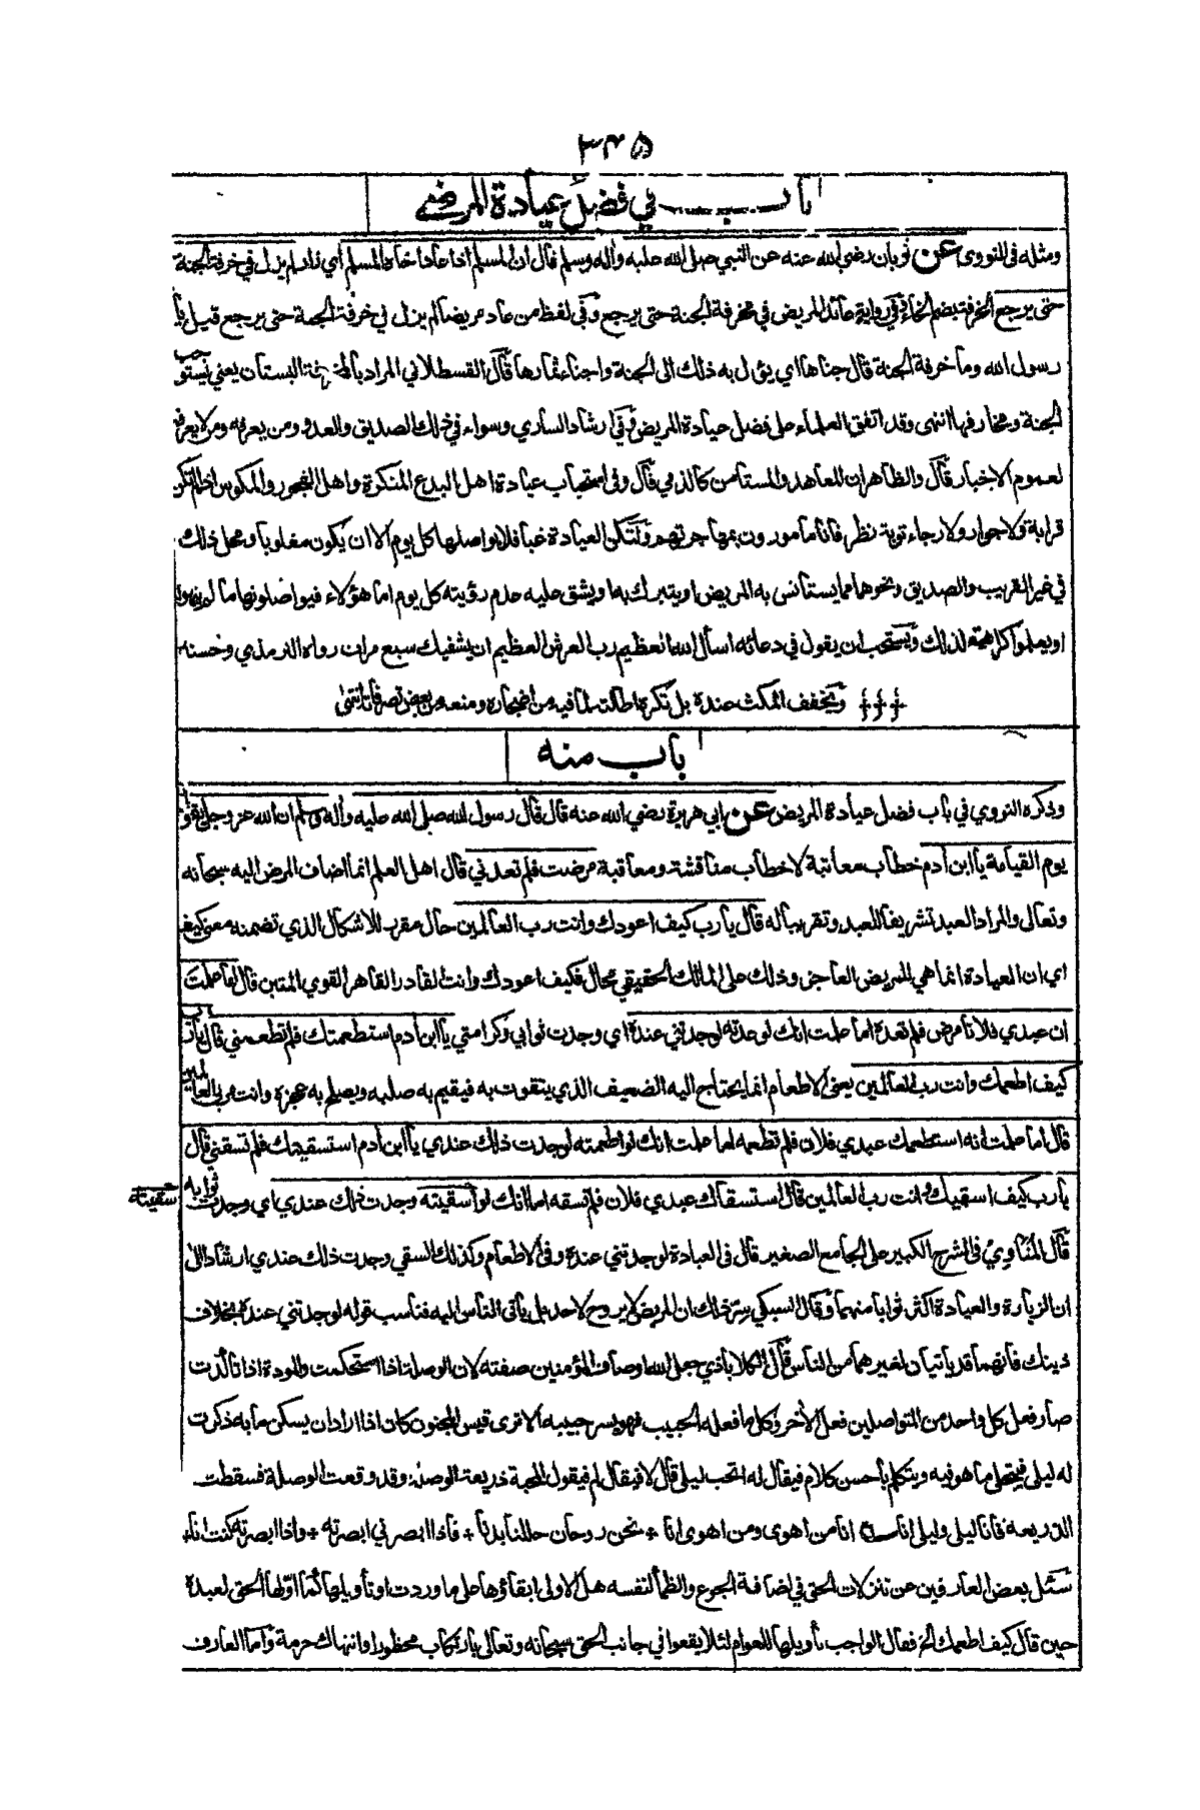 ٣٤٥
باب في فضل عيادة المرضى
ومثله في النووي عن ثوبان رضي الله عنه عن النبي صلى الله عليه وآله وسلم قال ان المسلم اذا عاد اخاه المسلم اي زاد لم يزل في خرفة الجنة
حتى يرجع الخرفة بضم الخاء وفي رواية عائد المريض في مخرفة الجنة حتى يرجع وفي لفظ من عاد مريضا لم يزل في خرفة الجنة حتى يرجع قيل يا
رسول الله وما خرفة الجنة قال جناها اي يؤل به ذلك الى الجنة واجتناء ثمارها قال القسطلاني المراد بالمخرفة البستان يعني يستوجب
الجنة ومخارفها انتهى وقد اتفق العلماء على فضل عيادة المريض وفي ارشاد الساري وسواء في ذلك الصديق والعدو ومن يعرفه ومن لا يعرفه
لعموم الاخبار قال والظاهر ان المعاهد والمستأمن كالذمي قال وفي استحباب عيادة اهل البدع المنكرة واهل الفجور والمكوس اذا لم تكن
قرابة ولا جوار ولا رجاء توبة نظر فانا مامورون بمهاجرتهم ولتكن العيادة غبا فلا يواصلها كل يوم الا ان يكون مغلوبا ومحل ذلك
في غير القريب والصديق ونحوهما مما يستانس به المريض او يتبرك به او يشق عليه عدم رؤيته كل يوم اما هؤلاء فيواصلونها ما لم ينهوا
او يعلموا كراهته لذلك ويستحب ان يقول في دعائه اسأل الله العظيم رب العرش العظيم ان يشفيك سبع مرات رواه الترمذي وحسنه
ويخفف المكث عنده بل تكره اطالته لما فيه من اضجاره ومنعه من بعض تصرفاته انتهى
باب منه
وذكره النووي في باب فضل عيادة المريض عن ابي هريرة رضي الله عنه قال قال رسول الله صلى الله عليه وآله وسلم ان الله عز وجل يقول
يوم القيامة يا ابن آدم خطاب معاتبة لا خطاب مناقشة ومعاقبة مرضت فلم تعدني قال اهل العلم انما اضاف المرض اليه سبحانه
وتعالى والمراد العبد تشريفا للعبد وتقريبا له قال يا رب كيف اعودك وانت رب العالمين حال مقرر للاشكال الذي تضمنه معنى كيف
اي ان العيادة انما هي للمريض العاجز وذلك على المالك الحقيقي محال فكيف اعودك وانت القادر القاهر القوي المتين قال اما علمت
ان عبدي فلانا مرض فلم تعده اما علمت انك لو عدته لوجدتني عنده اي وجدت ثوابي وكرامتي يا ابن آدم استطعمتك فلم تطعمني قال يا رب
كيف اطعمك وانت رب العالمين يعني الاطعام انما يحتاج اليه الضعيف الذي يتقوت به فيقيم به صلبه ويصلح به عجزه وانت رب العالمين
قال اما علمت انه استطعمك عبدي فلان فلم تطعمه اما علمت انك لو اطعمته لوجدت ذلك عندي يا ابن آدم استسقيتك فلم تسقني قال
يا رب كيف اسقيك وانت رب العالمين قال استسقاك عبدي فلان فلم تسقه اما انك لو اسقيته وجدت ذلك عندي اي وجدت ثوابه
سقيته
قال المناوي في الشرح الكبير على الجامع الصغير قال في العيادة لوجدتني عنده وفي الاطعام وكذلك السقي وجدت ذلك عندي ارشادا الى
ان الزيارة والعيادة اكثر ثوابا منهما وقال السبكي سر ذلك ان المريض لا يروح لاحد بل يأتي الناس اليه فناسب قوله لوجدتني عنده بخلاف
ذينك فانهما قد ياتيان لغيرهما من الناس قال الكلاباذي جعل الله اوصاف المؤمنين صفته لان الوصلة اذا استحكمت والمودة اذا تأكدت
صار فعل كل واحد من المتواصلين فعل الآخر وكل ما فعله الحبيب فهو يسر حبيبه الا ترى قيس المجنون كان اذا اراد ان يسكن ما به ذكرت
له ليلى فيتجلى ما هو فيه ويتكلم باحسن كلام فيقال له اتحب ليلى قال لا فيقال لم فيقول المحبة ذريعة الوصلة وقد وقعت الوصلة فسقطت
الذريعة فانا ليلى وليلى انا انا من اهوى ومن اهوى انا + نحن روحان حللنا بدنا + فاذا ابصرتني ابصرته + واذا ابصرته كنت انا
سئل بعض العارفين عن تنزلات الحق في اضافة الجوع والظمأ لنفسه هل الاولى ابقاؤها على ما وردت او تأويلها كما اولها الحق لعبده
حين قال كيف اطعمك الخ فقال الواجب تأويلها للعوام لئلا يقعوا في جانب الحق سبحانه وتعالى بارتكاب محظور او انتهاك حرمة واما العارف